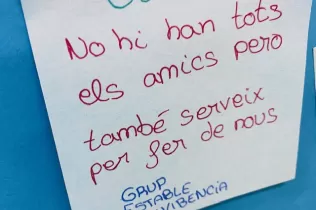 No hi han tots
els amics pero
també serveix
per fer de nous
GRUP
ESTABLE